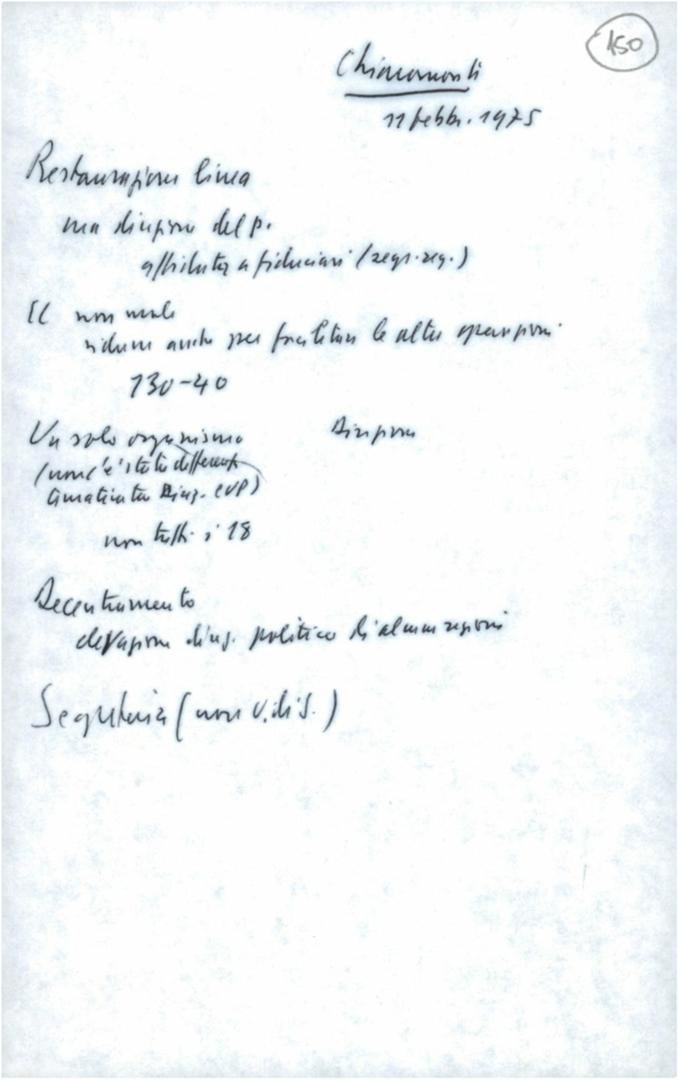 150
Chiaromonti
11 febbr. 1975
Restaurazione linea
ma direzione del p.
affidata a fiduciari (segr. reg.)
non male
ridurre anche per facilitare le altre operazioni
130-40
Un solo organismo
Direzione
(non c'è stata differenza
tra Direz. e UP)
non tutti i 18
Decentramento
direz. politica di alcune regioni
Segreteria (non U. di S.)